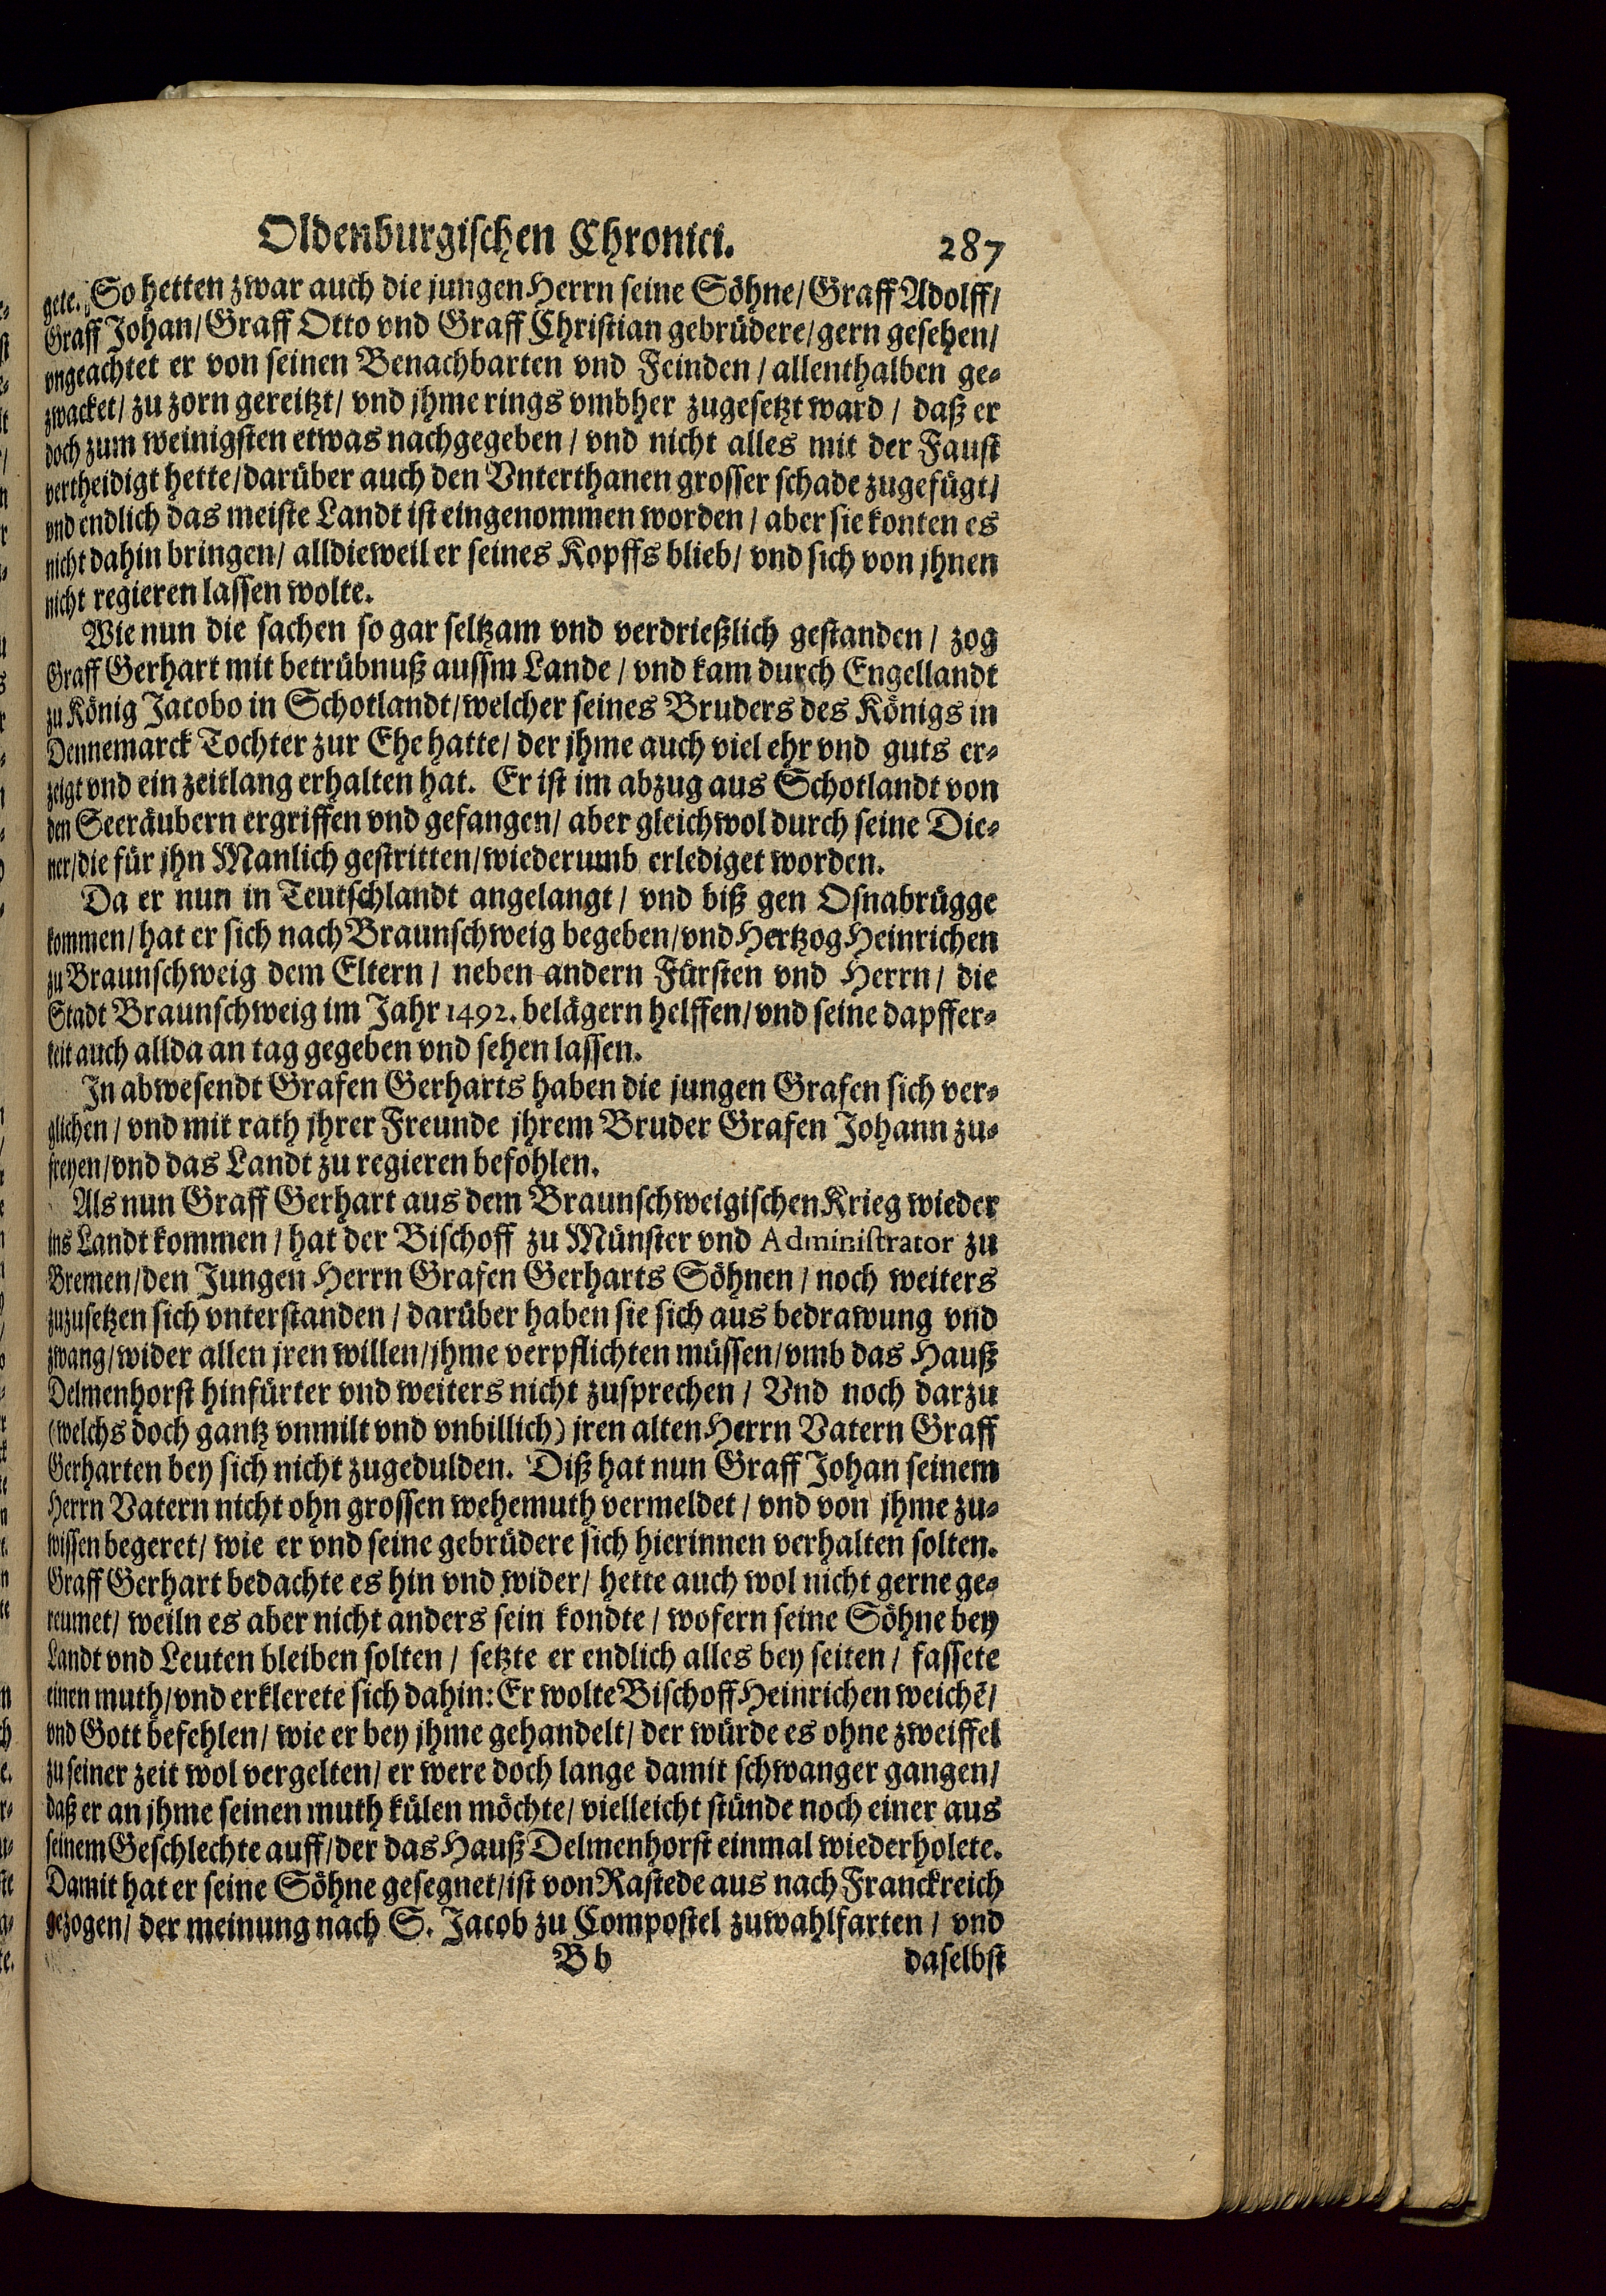 Oldenburgischen Chronici. 287
gete. So hetten zwar auch die jungen Herrn seine Söhne/ Graff Adolff/
Graff Johan/ Graff Otto vnd Graff Christian gebrüdere/ gern gesehen/
vngeachtet er von seinen Benachbarten vnd Feinden / allenthalben ge-
zwacket/ zu zorn gereitzt/ vnd jhme rings vmbher zugesetzt ward / daß er
doch zum weinigsten etwas nachgegeben / vnd nicht alles mit der Faust
vertheidigt hette/ darüber auch den Vnterthanen grosser schade zugefügt/
vnd endlich das meiste Landt ist eingenommen worden / aber sie konten es
nicht dahin bringen/ alldieweil er seines Kopffs blieb/ vnd sich von jhnen
nicht regieren lassen wolte.
Wie nun die sachen so gar seltzam vnd verdrießlich gestanden / zog
Graff Gerhart mit betrübnuß aussm Lande / vnd kam durch Engellandt
zu König Jacobo in Schotlandt/ welcher seines Bruders des Königs in
Dennemarck Tochter zur Ehe hatte/ der jhme auch viel ehr vnd guts er-
zeigt vnd ein zeitlang erhalten hat. Er ist im abzug aus Schotlandt von
den Seeräubern ergriffen vnd gefangen/ aber gleichwol durch seine Die-
ner/ die für jhn Manlich gestritten/ wiederumb erlediget worden.
Da er nun in Teutschlandt angelangt / vnd biß gen Osnabrügge
kommen/ hat er sich nach Braunschweig begeben/ vnd Hertzog Heinrichen
zu Braunschweig dem Eltern / neben andern Fürsten vnd Herrn / die
Stadt Braunschweig im Jahr 1492. belägern helffen/ vnd seine dapffer-
keit auch allda an tag gegeben vnd sehen lassen.
In abwesendt Grafen Gerharts haben die jungen Grafen sich ver-
glichen / vnd mit rath jhrer Freunde jhrem Bruder Grafen Johann zu-
freyen/ vnd das Landt zu regieren befohlen.
Als nun Graff Gerhart aus dem Braunschweigischen Krieg wieder
ins Landt kommen / hat der Bischoff zu Münster vnd Administrator zu
Bremen/ den Jungen Herrn Grafen Gerharts Söhnen / noch weiters
zuzusetzen sich vnterstanden / darüber haben sie sich aus bedrawung vnd
zwang/ wider allen jren willen/ jhme verpflichten müssen/ vmb das Hauß
Delmenhorst hinfürter vnd weiters nicht zusprechen / Vnd noch darzu
(welchs doch gantz vnmilt vnd vnbillich) jren alten Herrn Vatern Graff
Gerharten bey sich nicht zugedulden. Diß hat nun Graff Johan seinem
Herrn Vatern nicht ohn grossen wehemuth vermeldet / vnd von jhme zu-
wissen begeret/ wie er vnd seine gebrüdere sich hierinnen verhalten solten.
Graff Gerhart bedachte es hin vnd wider/ hette auch wol nicht gerne ge-
reumet/ weiln es aber nicht anders sein kondte / wofern seine Söhne bey
Landt vnd Leuten bleiben solten / setzte er endlich alles bey seiten / fassete
einen muth/ vnd erklerete sich dahin: Er wolte Bischoff Heinrichen weichẽ/
vnd Gott befehlen/ wie er bey jhme gehandelt/ der würde es ohne zweiffel
zu seiner zeit wol vergelten/ er were doch lange damit schwanger gangen/
daß er an jhme seinen muth külen möchte/ vielleicht stünde noch einer aus
seinem Geschlechte auff/ der das Hauß Delmenhorst einmal wiederholete.
Damit hat er seine Söhne gesegnet/ ist von Rastede aus nach Franckreich
gezogen/ der meinung nach S. Jacob zu Compostel zuwahlfarten / vnd
Bb daselbst